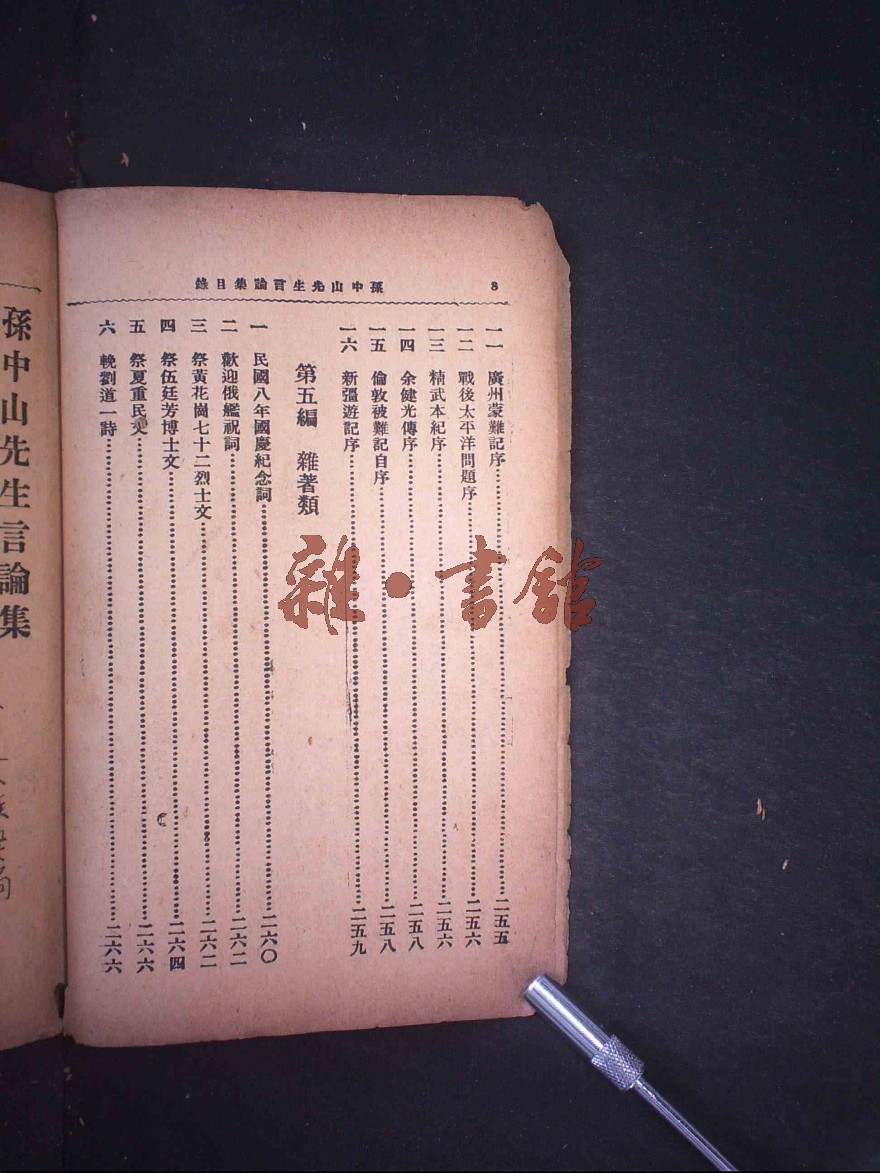 孫中山先生言論集目錄
8
一一 廣州蒙難記序……二五五
一二 戰後太平洋問題序……二五六
一三 精武本紀序……二五六
一四 余健光傳序……二五八
一五 倫敦被難記自序……二五八
一六 新疆遊記序……二五九
第五編 雜著類
一 民國八年國慶紀念詞……二六〇
二 歡迎俄艦祝詞……二六二
三 祭黃花崗七十二烈士文……二六二
四 祭伍廷芳博士文……二六四
五 祭夏重民文……二六六
六 輓劉道一詩……二六六
孫中山先生言論集
雜·書館